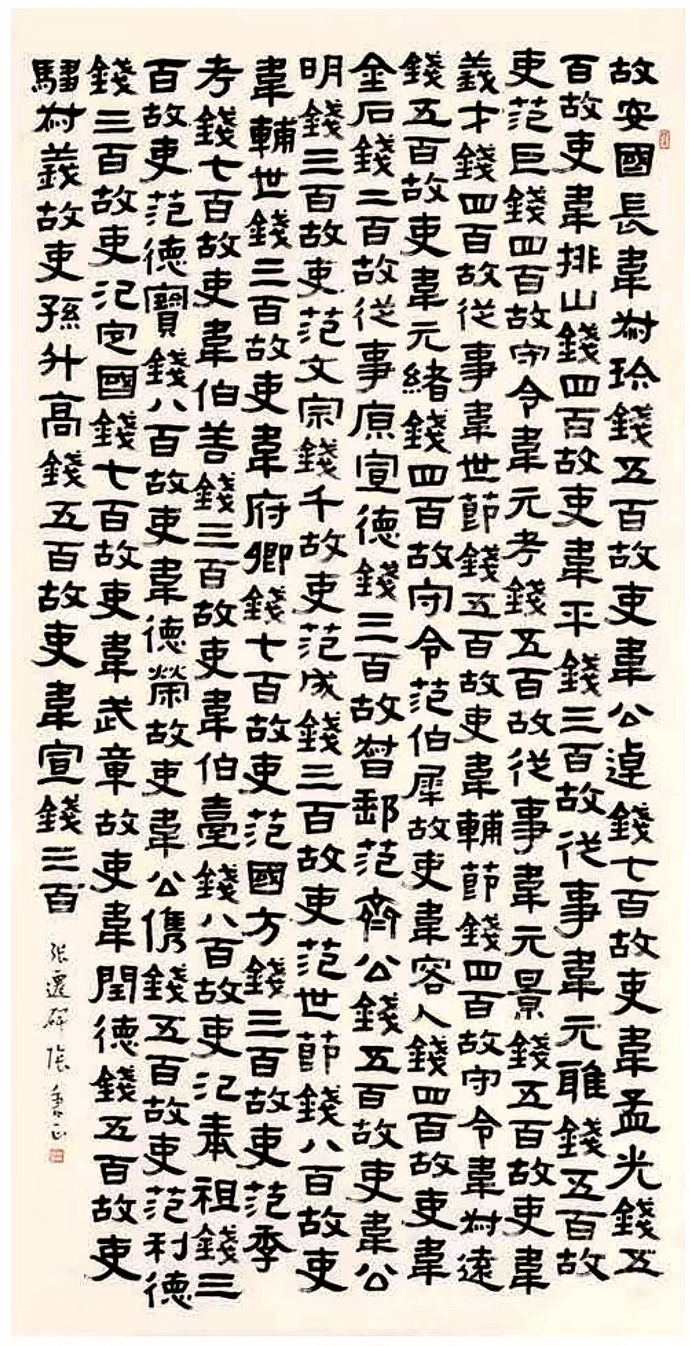 故安國長韋叔珍錢五百故吏韋公逴錢七百故吏韋孟光錢五
百故吏韋排山錢四百故吏韋平錢三百故從事韋元雎錢五百故
吏范巨錢四百故守令韋元考錢五百故從事韋元景錢五百故吏韋
義才錢四百故從事韋世節錢五百故吏韋輔節錢四百故守令韋叔遠
錢五百故吏韋元緒錢四百故守令范伯犀故吏韋容人錢四百故吏韋
金石錢二百故從事原宣德錢三百故督郵范齊公錢五百故吏韋公
明錢三百故吏范文宗錢千故吏范成錢三百故吏范世節錢八百故吏
韋輔世錢三百故吏韋府卿錢七百故吏范國方錢三百故吏范季
考錢七百故吏韋伯善錢三百故吏韋伯臺錢八百故吏氾奉祖錢三
百故吏范德寶錢八百故吏韋德榮故吏韋公儁錢五百故吏范利德
錢三百故吏氾定國錢七百故吏韋武章故吏韋閏德錢五百故吏
騶叔義故吏孫升高錢五百故吏韋宣錢三百
張遷碑 張秉正